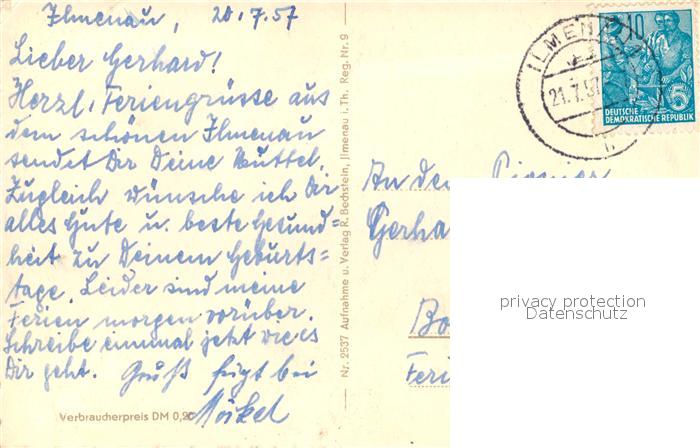 Ilmenau, 20.7.57
Lieber Gerhard!
Herzl. Feriengrüsse aus
dem schönen Ilmenau
sendet Dir Deine Muttel.
Zugleich wünsche ich Dir
alles Gute u. beste Gesund=
heit zu Deinem Geburts=
tage. Leider sind meine
Ferien morgen vorüber.
Schreibe einmal jetzt wie es
Dir geht. Gruß fügt bei
Verbraucherpreis DM 0,20
Nr. 2537 Aufnahme u. Verlag R. Bechstein, Jlmenau i. Th. Reg. Nr. 9
ILMENAU
21.7.5
h
10
5
DEUTSCHE
DEMOKRATISCHE REPUBLIK
An den Pionier
Gerha
Bo
Feri
privacy protection
Datenschutz